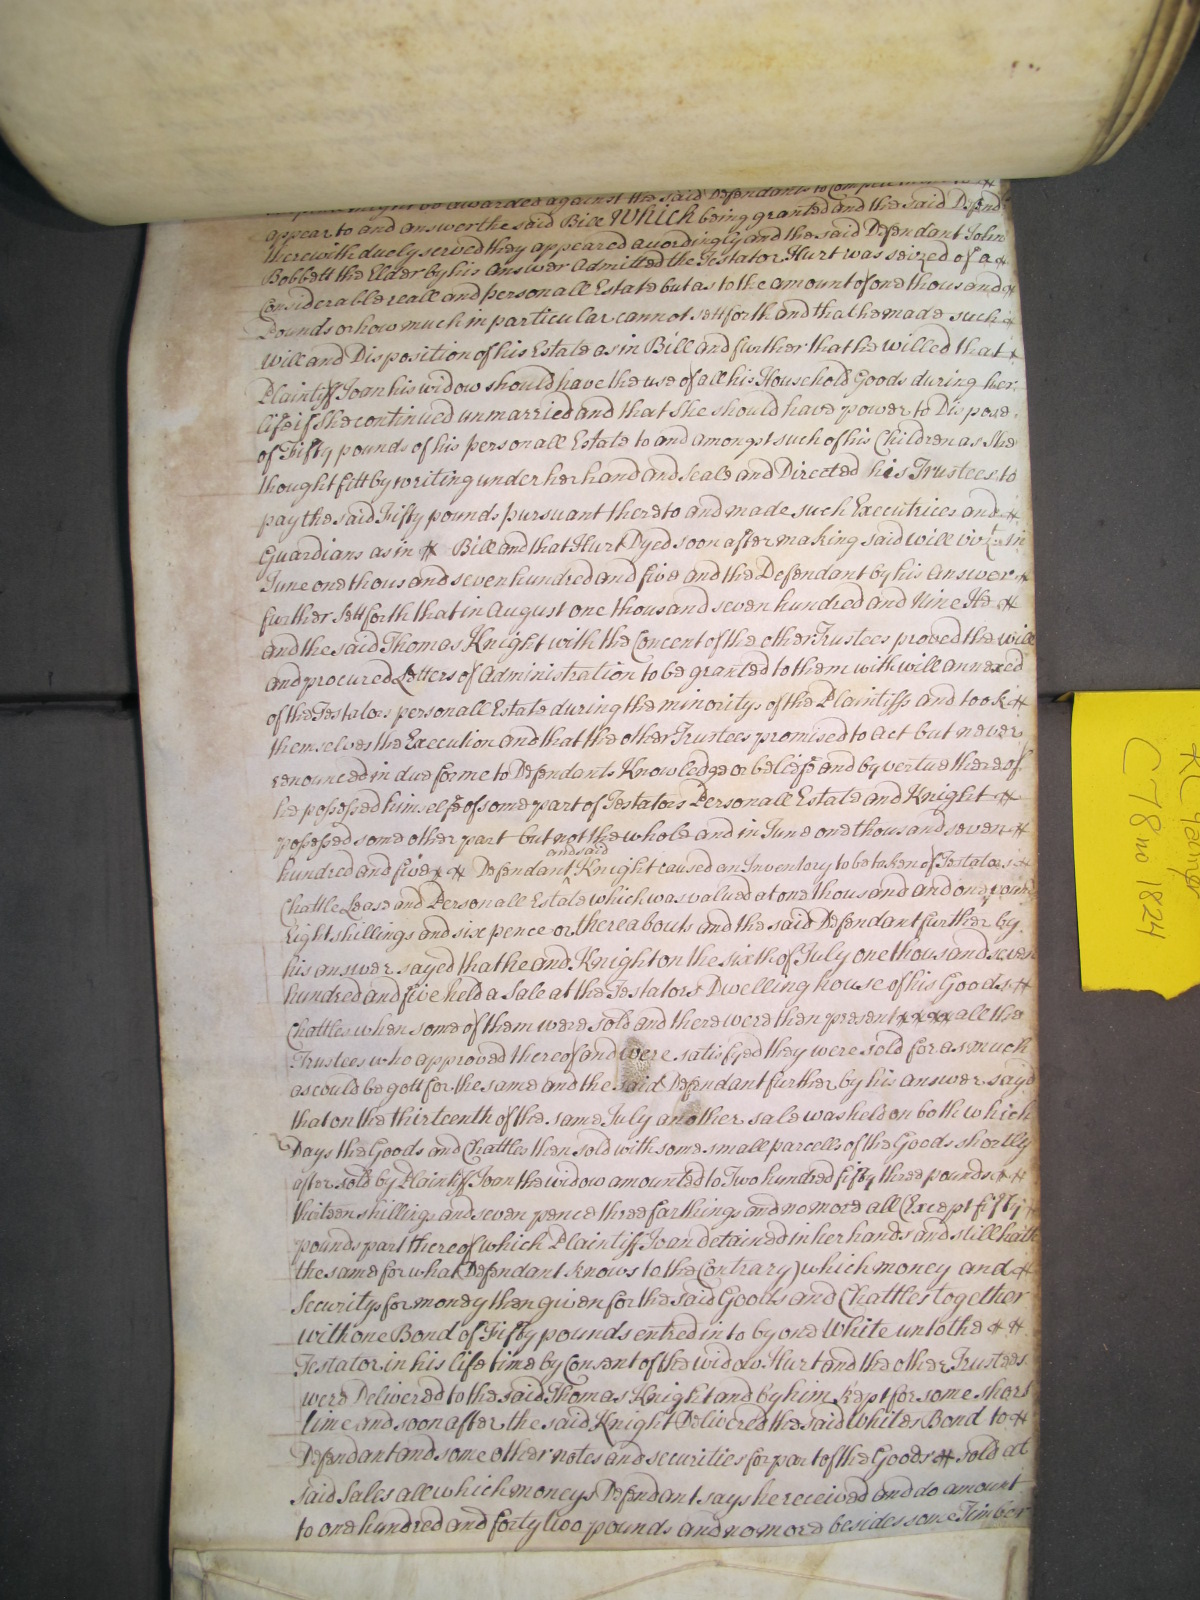 might be awarded against the said Defendants to
appear to and answer the said Bill Which being granted and the said Defend
therewith duely served they appeared accordingly and the said Defendant John
Bobbett the Elder by his answer Admitted the Testator Hurt was seized of a
Considerable reall and personall Estate but as to the amount of one thousand
Pounds or how much in particular cannot sett forth and that he made such
Will and Disposition of his Estate as in Bill and further that he willed that
Plaintiff Joan his widow should have the use of all his Household Goods during her
life if She continued unmarried and that She should have power to Dispose
of Fifty pounds of his personall Estate to and amongst such of his Children as She
thought fitt by writing under her hand and Seale and Directed his Trustees to
pay the said Fifty pounds pursuant thereto and made such Executrices and
Guardians as in Bill and that Hurt Dyed soon after making said will vizt in
June one thousand seven hundred and five and the Defendant by his Answer
further sett forth that in August one thousand seven hundred and Nine He
and the said Thomas Knight with the Concent of the other Trustees proved the will
and procured Letters of Administration to be granted to them with will annexed
of the Testators personall Estate during the minority of the Plaintiffs and took
themselves the Execution and that the other Trustees promised to act but never
renounced in due forme to Defendants Knowledge or beliefe and by vertue thereof
he possessed himselfe of some part of Testators Personall Estate and Knight
possessed some other part but not the whole and in June one thousand seven
hundred and five Defendant and said Knight caused an Inventory to be taken of Testators
Chattle Lease and Personall Estate which was valued at one thousand and one pound
Eight shillings and six pence or thereabouts and the said Defendant further by
his answer sayed that he and Knight on the sixth of July one thousand seven
hundred and five held a Sale at the Testators Dwelling house of his Goods
Chattles when some of them were sold and there were then present all the
Trustees who approved thereof and were satisfyed they were sold for as much
as could be gott for the same and the said Defendant further by his answer says
that on the thirteenth of the same July another sale was held on both which
Days the Goods and Chattles then sold with some small parcells of the Goods shortly
after sold by Plaintiff Joan the widow amounted to Two hundred fifty three pounds
thirteen shillings and seven pence three farthings and no more all (Except fifty
pounds part thereof which Plaintiff Joan detained in her hands and still hath
the same for what Defendant knows to the Contrary) which money and
Security for money then given for the said Goods and Chattles together
with one Bond of Fifty pounds entred into by one White unto the
Testator in his life time by Consent of the widow Hurt and the other Trustees
were Delivered to the said Thomas Knight and by him kept for some short
time and soon after the said Knight Delivered the said Whites Bond to
Defendant and some other notes and securities for part of the Goods sold at
said Sales all which moneys Defendant says he received and do amount
to one hundred and forty two pounds and no more besides some Timber
C 78 no 1824